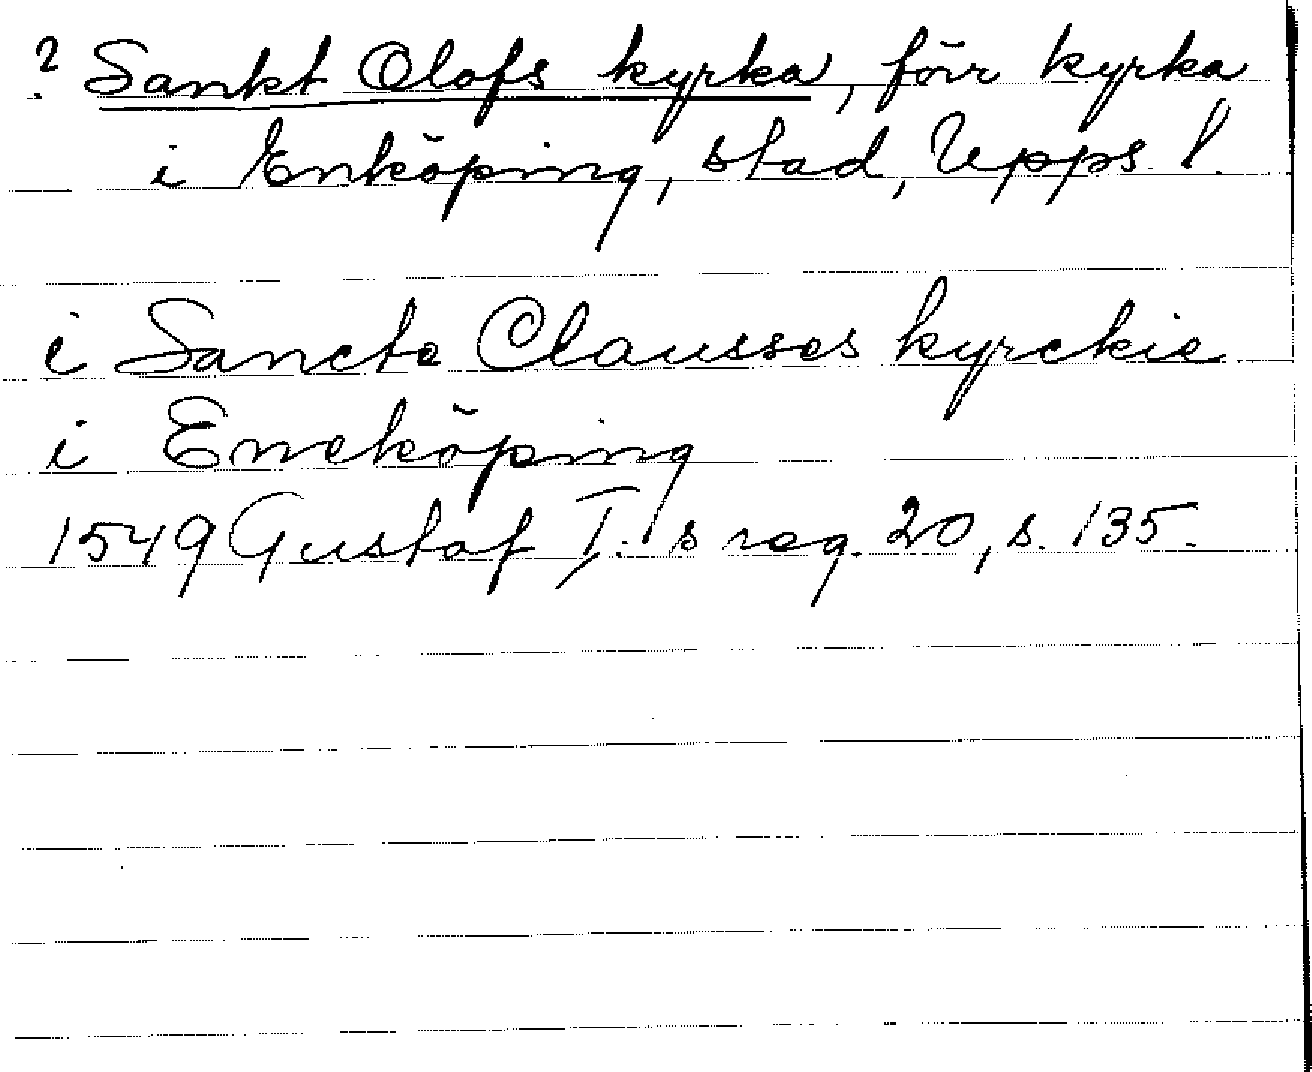 ? Sankt Olofs kyrka, förr kyrka
i Enköping, stad, Upps. l.
i Sancte Clausses kyrckie
i Eneköping
1549 Gustaf I:s reg. 20, s. 135.